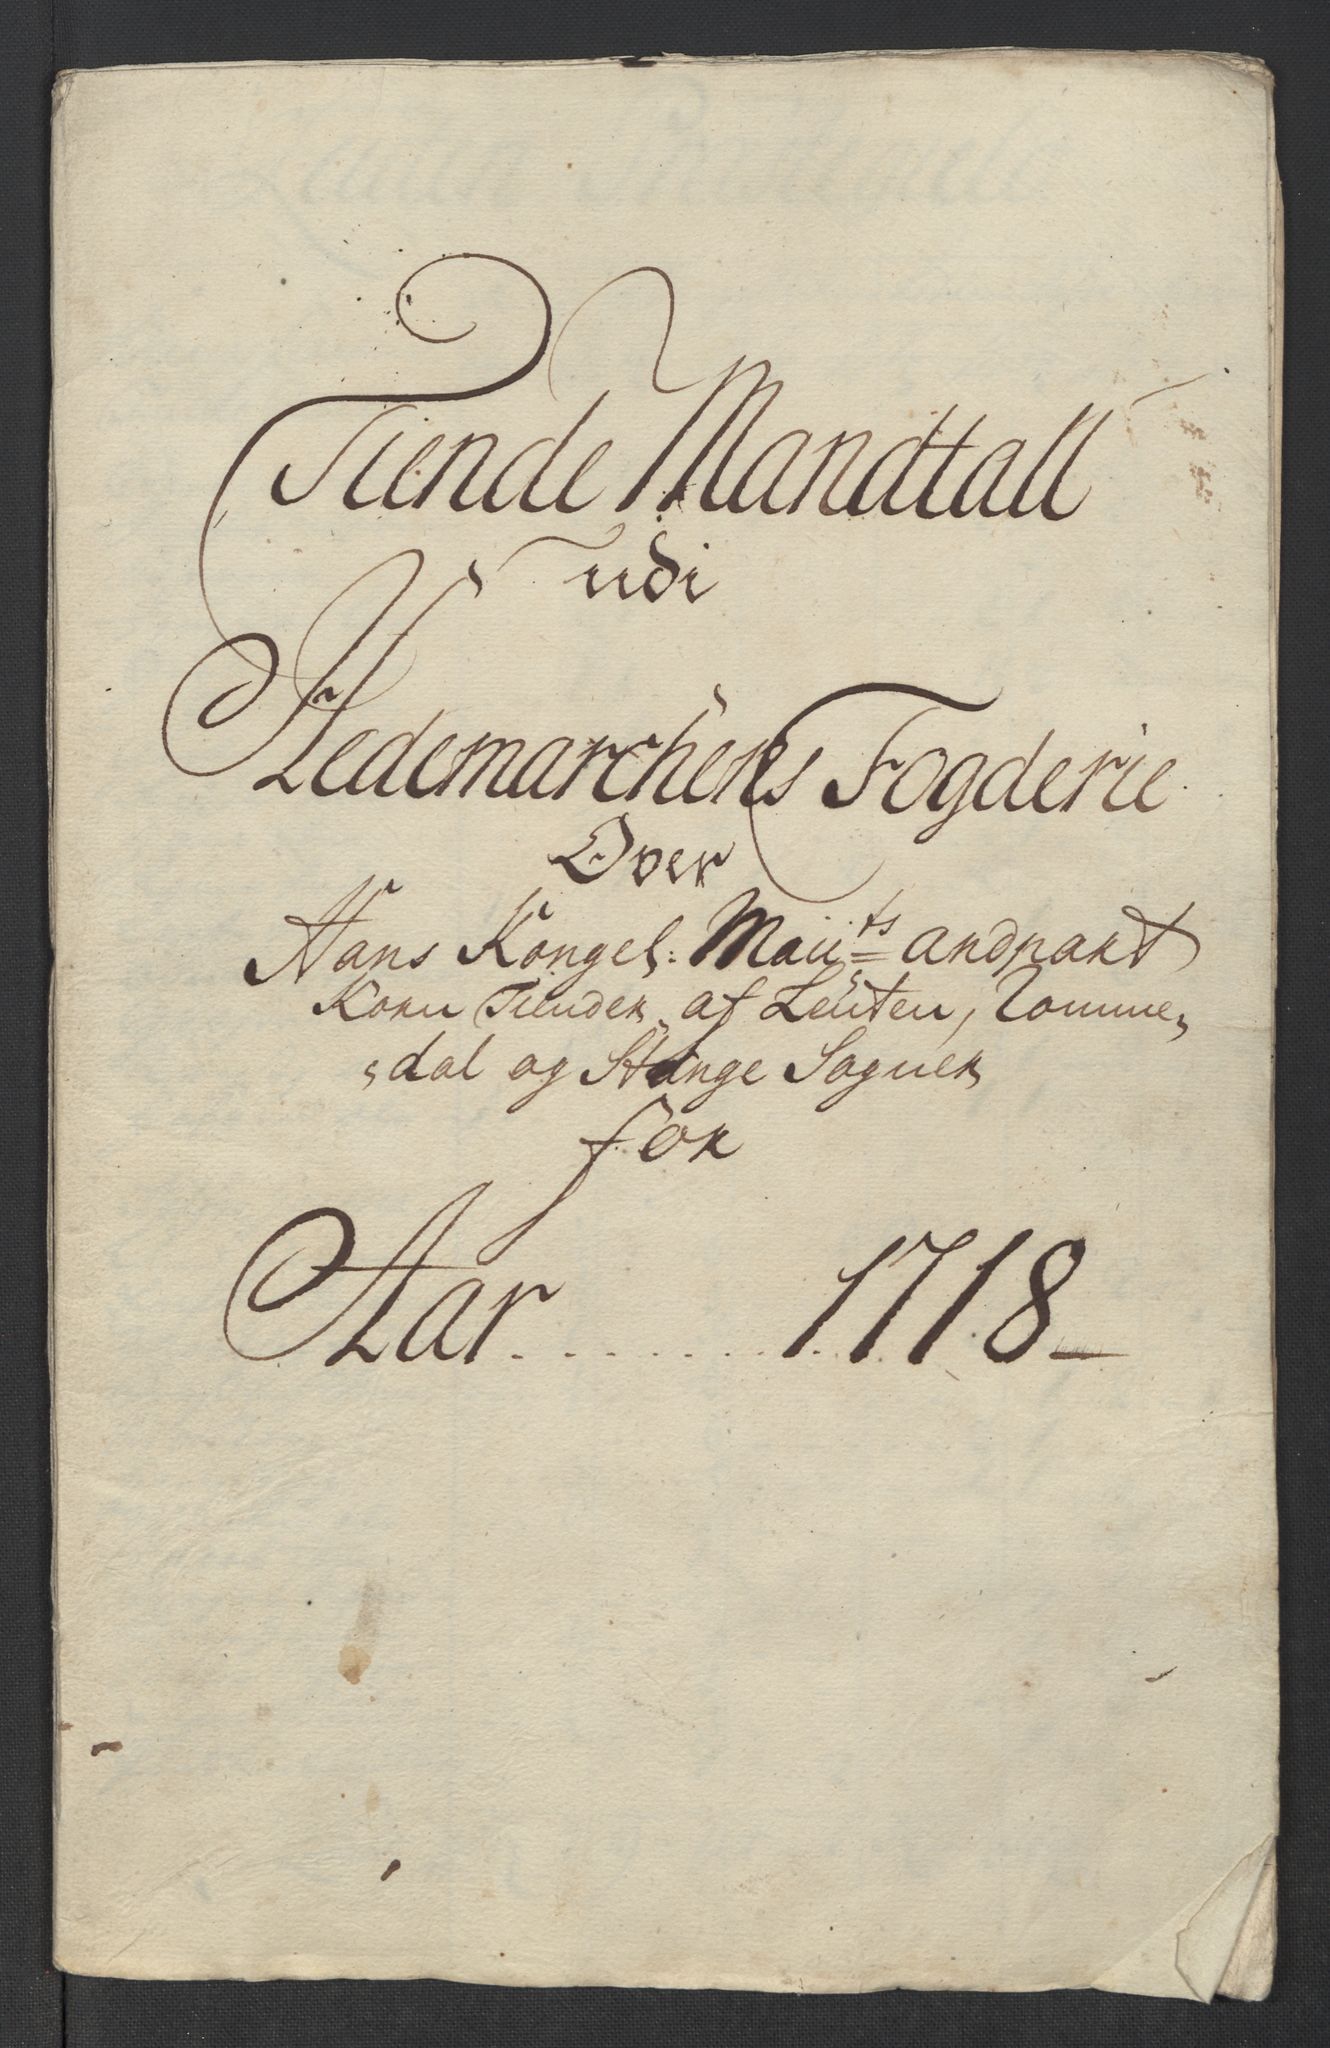 Tiende Mandtall
udi
Hedemarchens Fogderie
Over
Hans Kongel: Maii:ts andpart
Korn Tiender af Leuten, Romme„
„dal og Stange Sogner
for
Aar ......... 1718